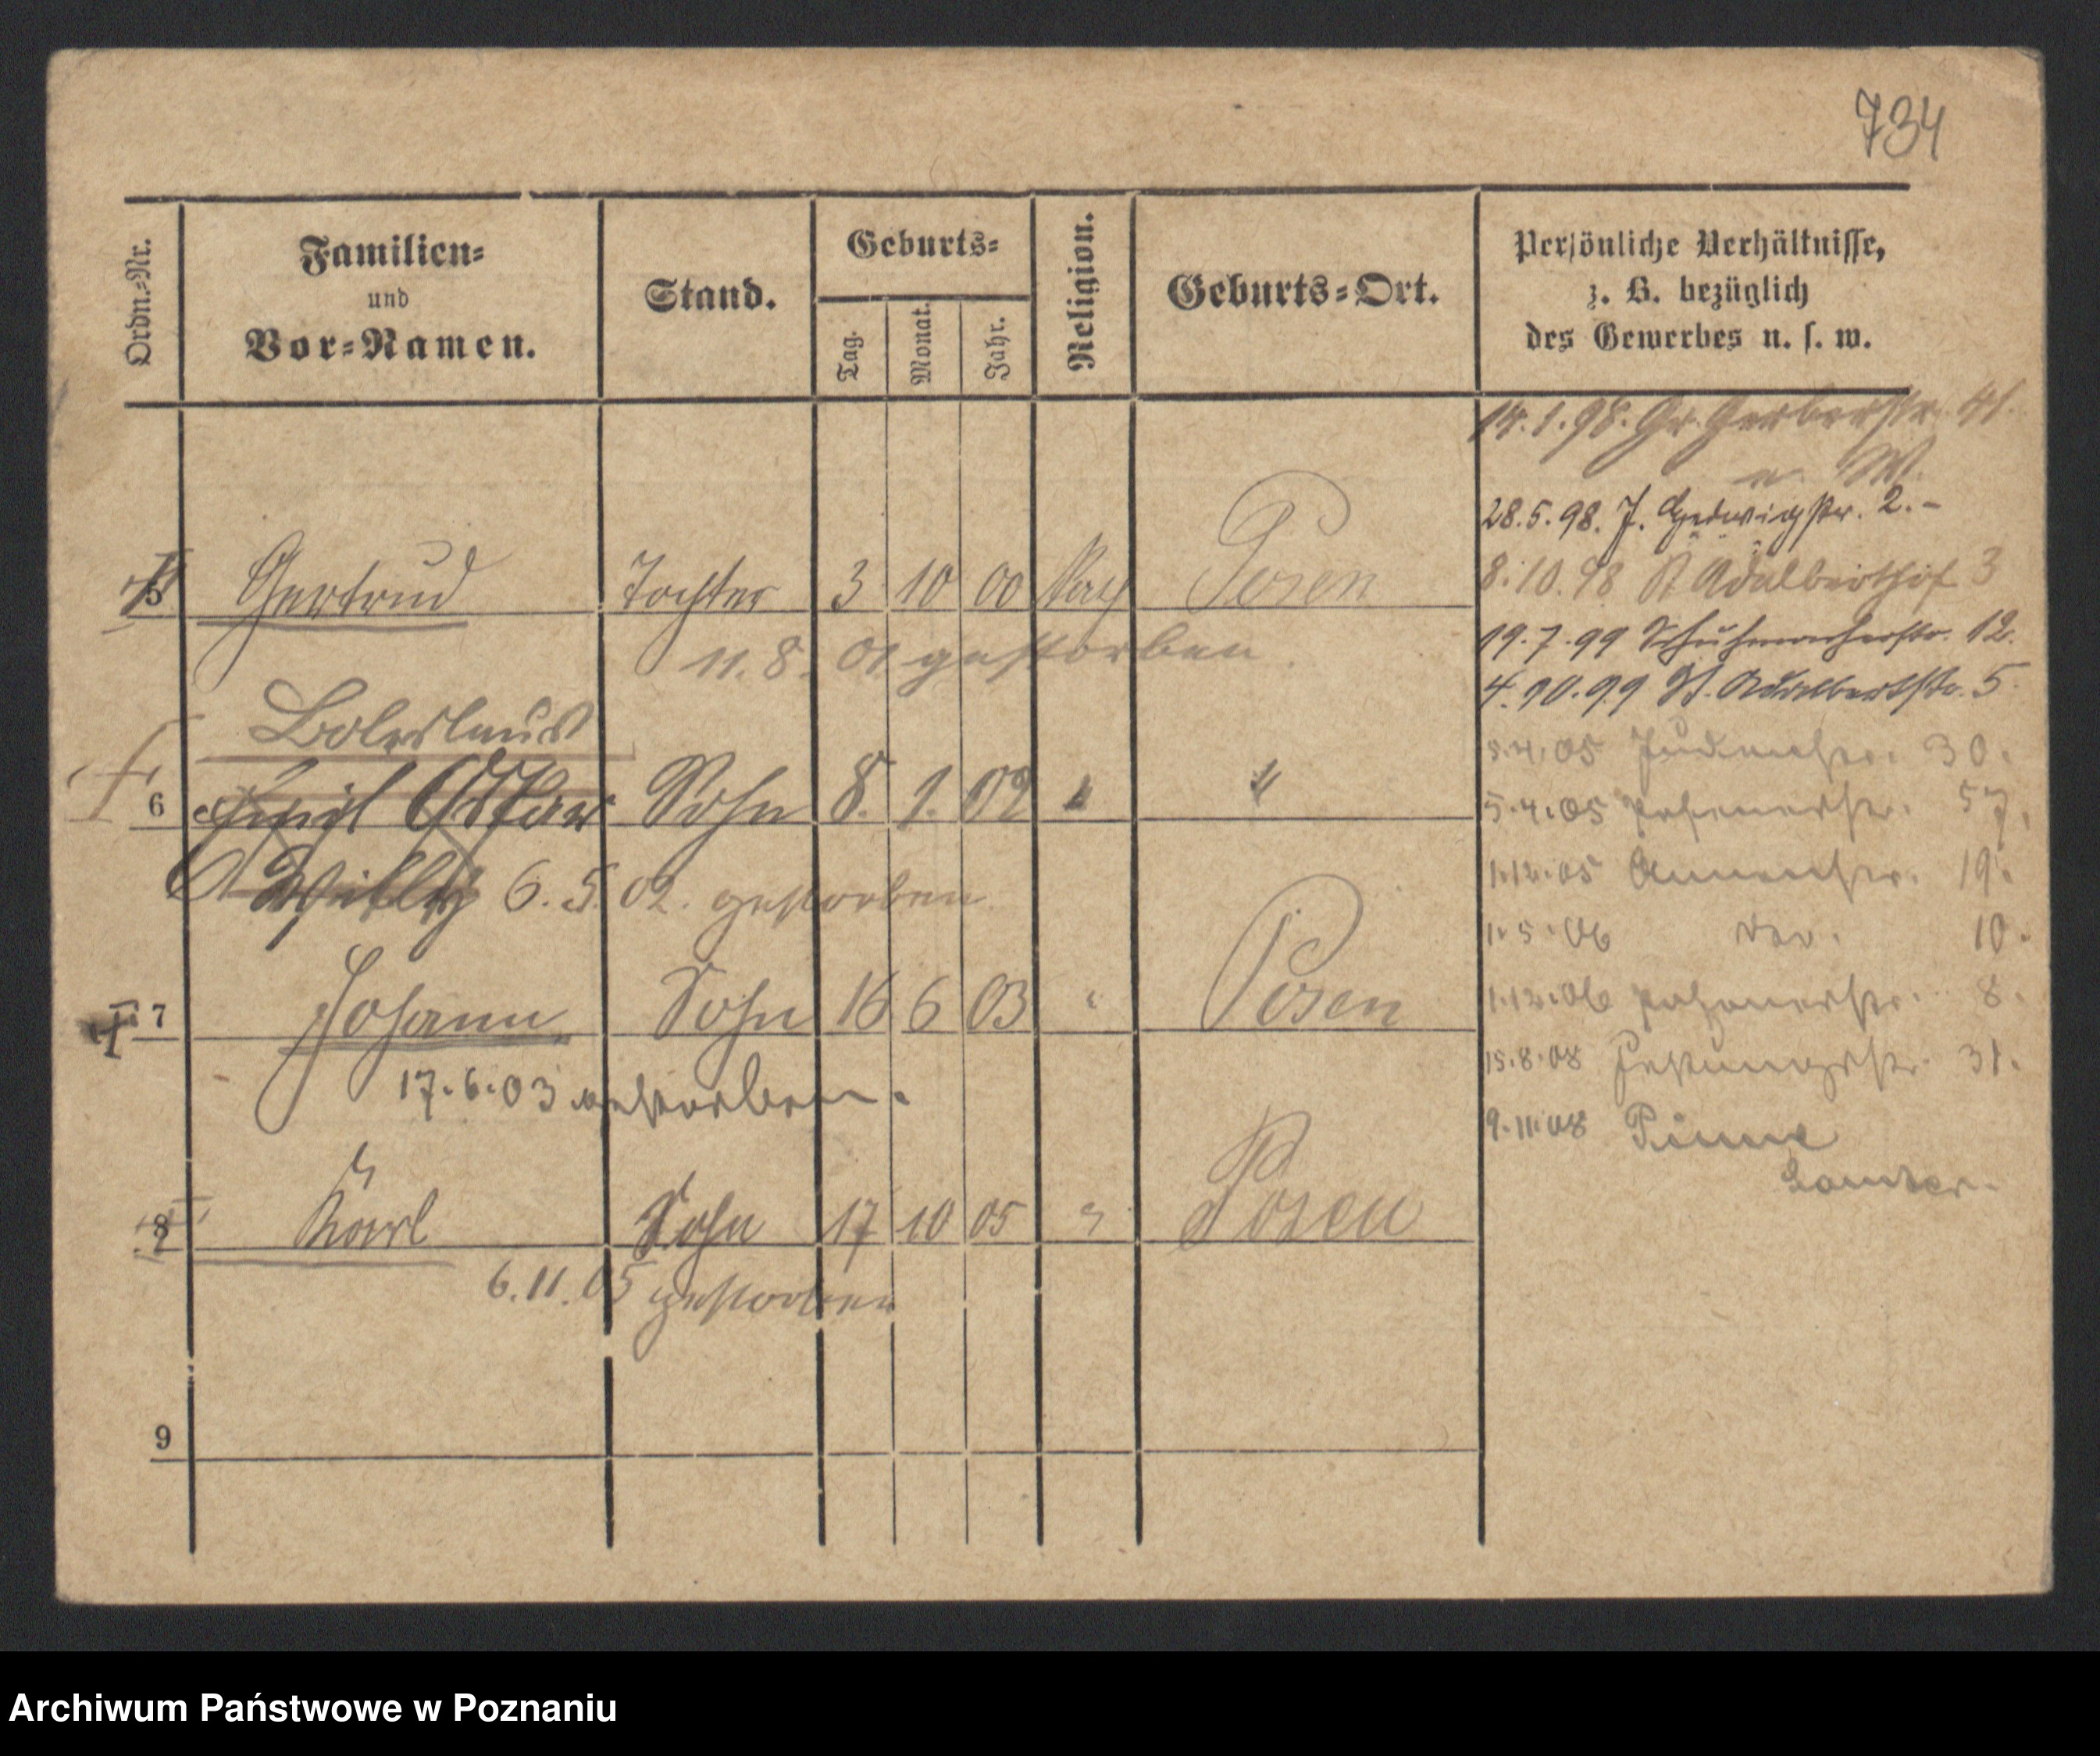 734
Ordn.-Nr.
Familien-
und
Vor-Namen.
Stand.
Geburts-
Tag.
Monat.
Jahr.
Religion.
Geburts-Ort.
Persönliche Verhältnisse,
z. B. bezüglich
des Gewerbes u. s. w.
14.1.98. Gr. Gerberstr. 41.
n. W.
28.5.98. J. Hedwigstr. 2. -
5 Gertrud Tochter 3 10 00 Kath Posen
11. 8. 01 gestorben.
8.10.98 St Adalberthof 3
19.7.99 Schuhmacherstr. 12.
4.10.99 St. Adalbertstr. 5
Boleslaus
6 Oskar Sohn 8. 1. 02 " "
Willy 6. 5. 02. gestorben
5.4.05 Judenstr. 30.
5.4.05 Posenerstr. 57.
1.12.05 Annenstr. 19.
1.5.06 10.
7 Johann Sohn 16 6 03 " Posen
17.6.03 gestorben.
1.12.06 Posenerstr. 8.
15.8.08 Festungsstr. 31.
9.11.08 Pinne
Samter.
8 Karl Sohn 17 10 05 " Posen
6.11.05 gestorben
9
Archiwum Państwowe w Poznaniu